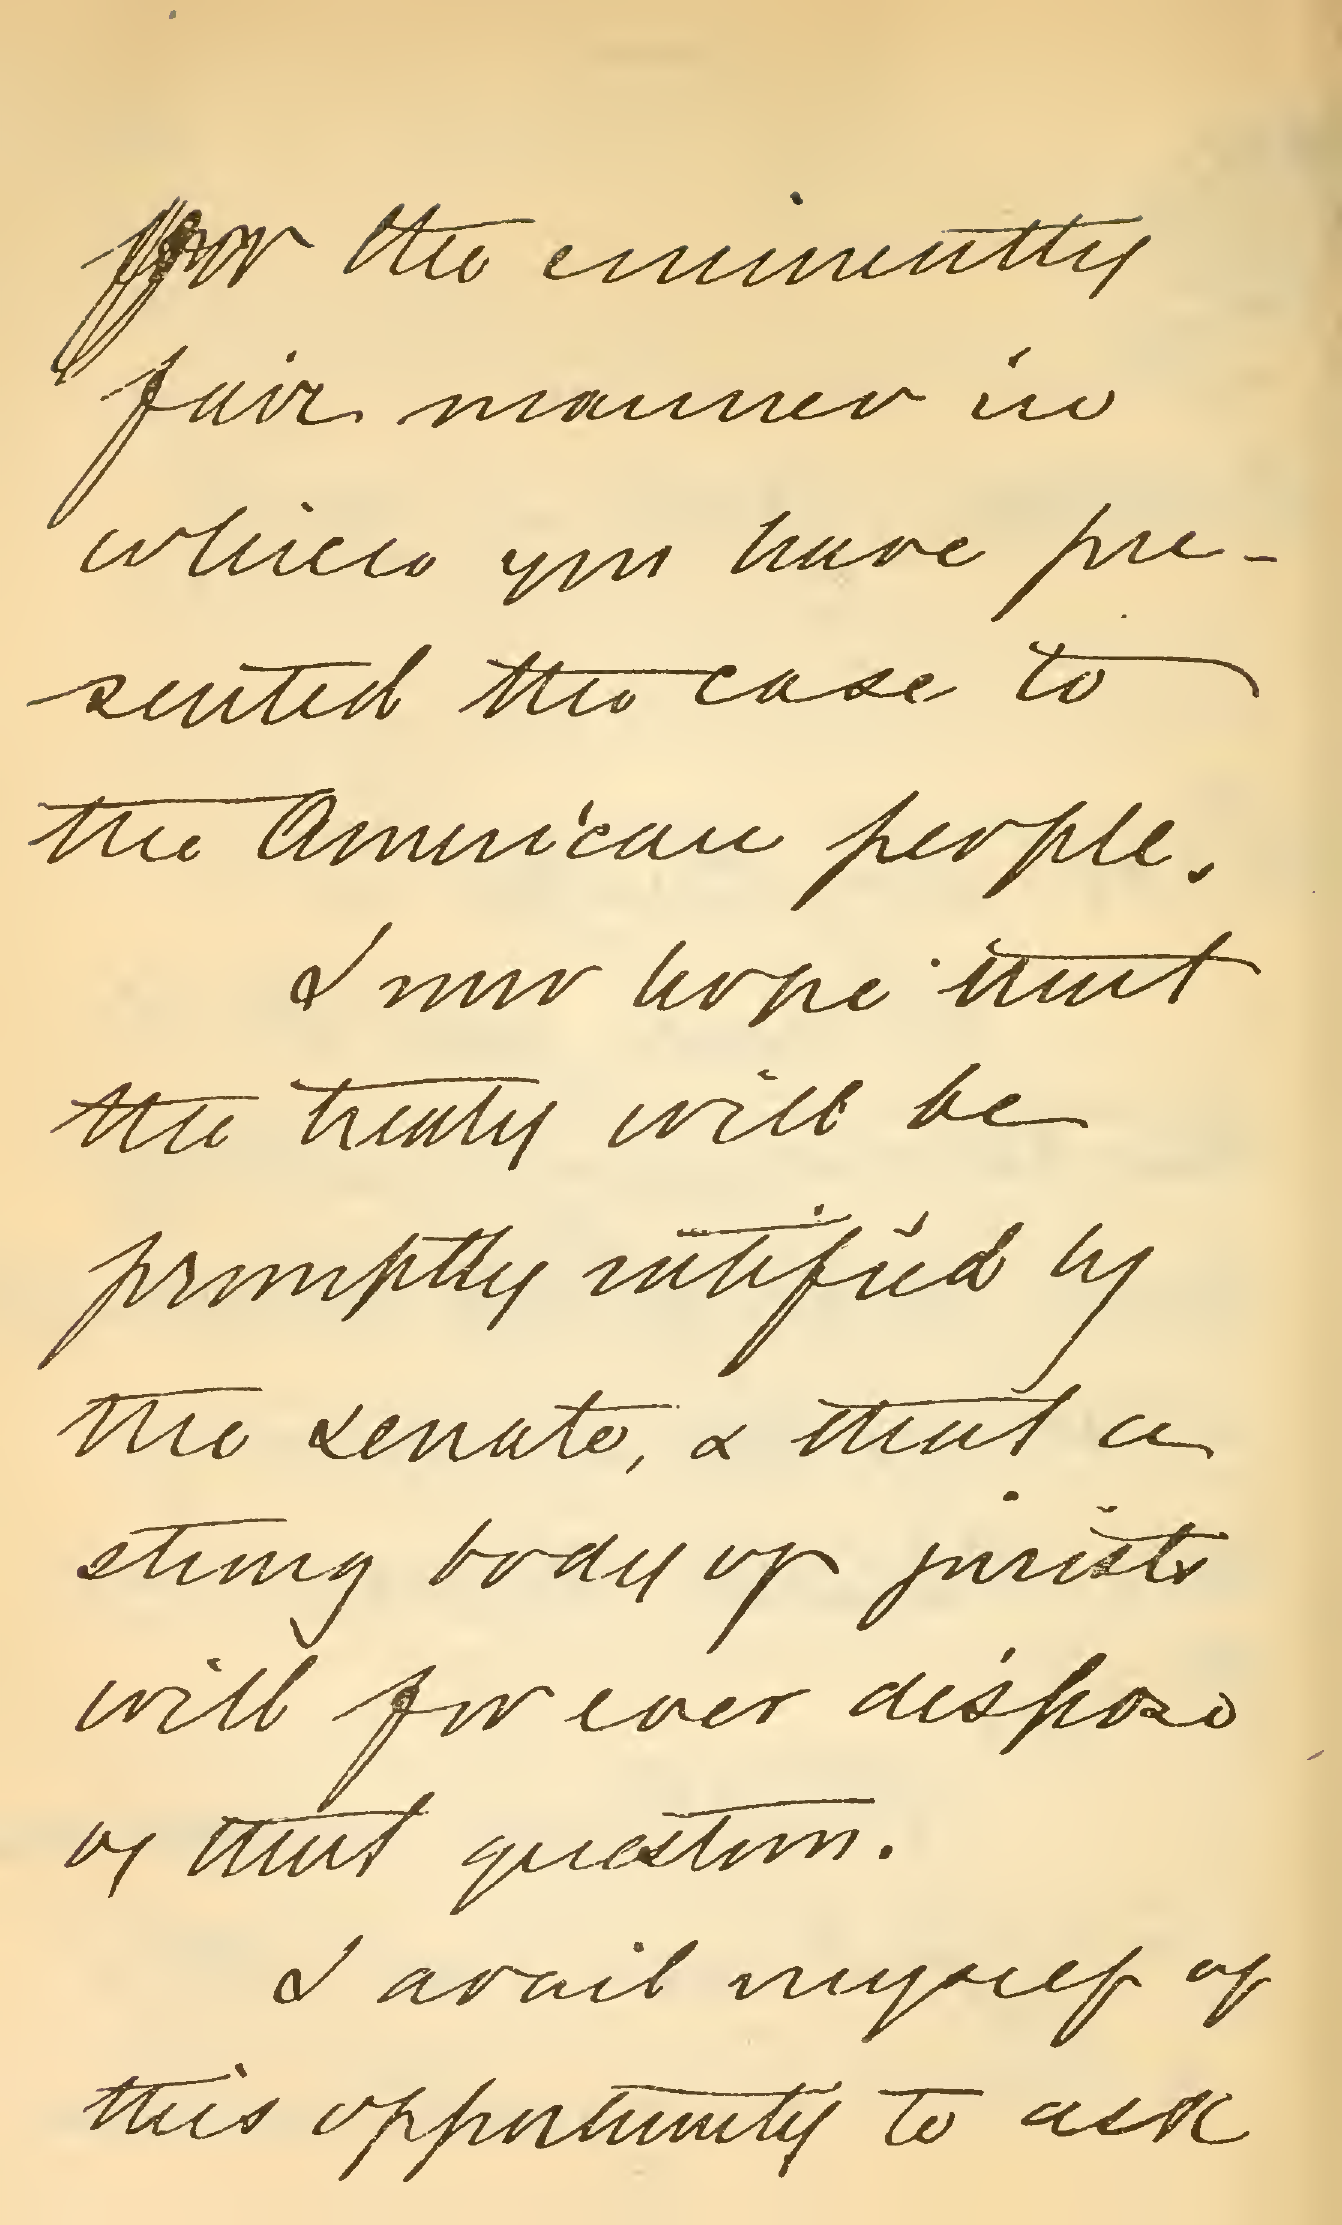 for the eminently
fair manner in
which you have pre-
sented the case to
the American people.
I now hope that
the treaty will be
promptly ratified by
the Senate, & that a
strong body of jurists
will for ever dispose
of that question.
I avail myself of
this opportunity to ask